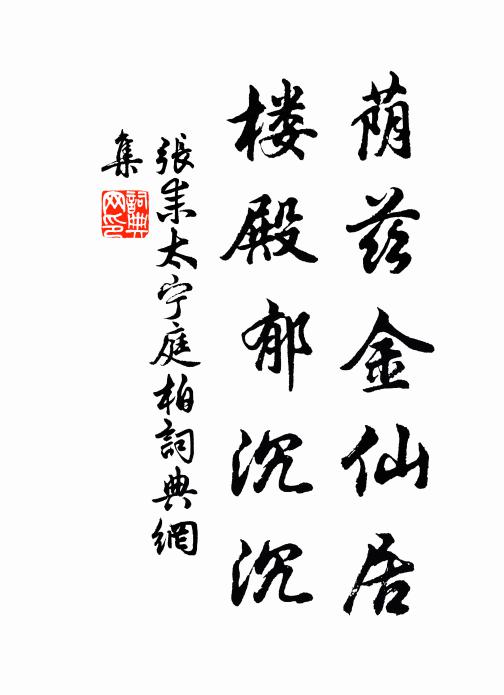 荫兹金仙居
楼殿郁沉沉
張耒太宁庭柏詞典網
集
詞典
网印